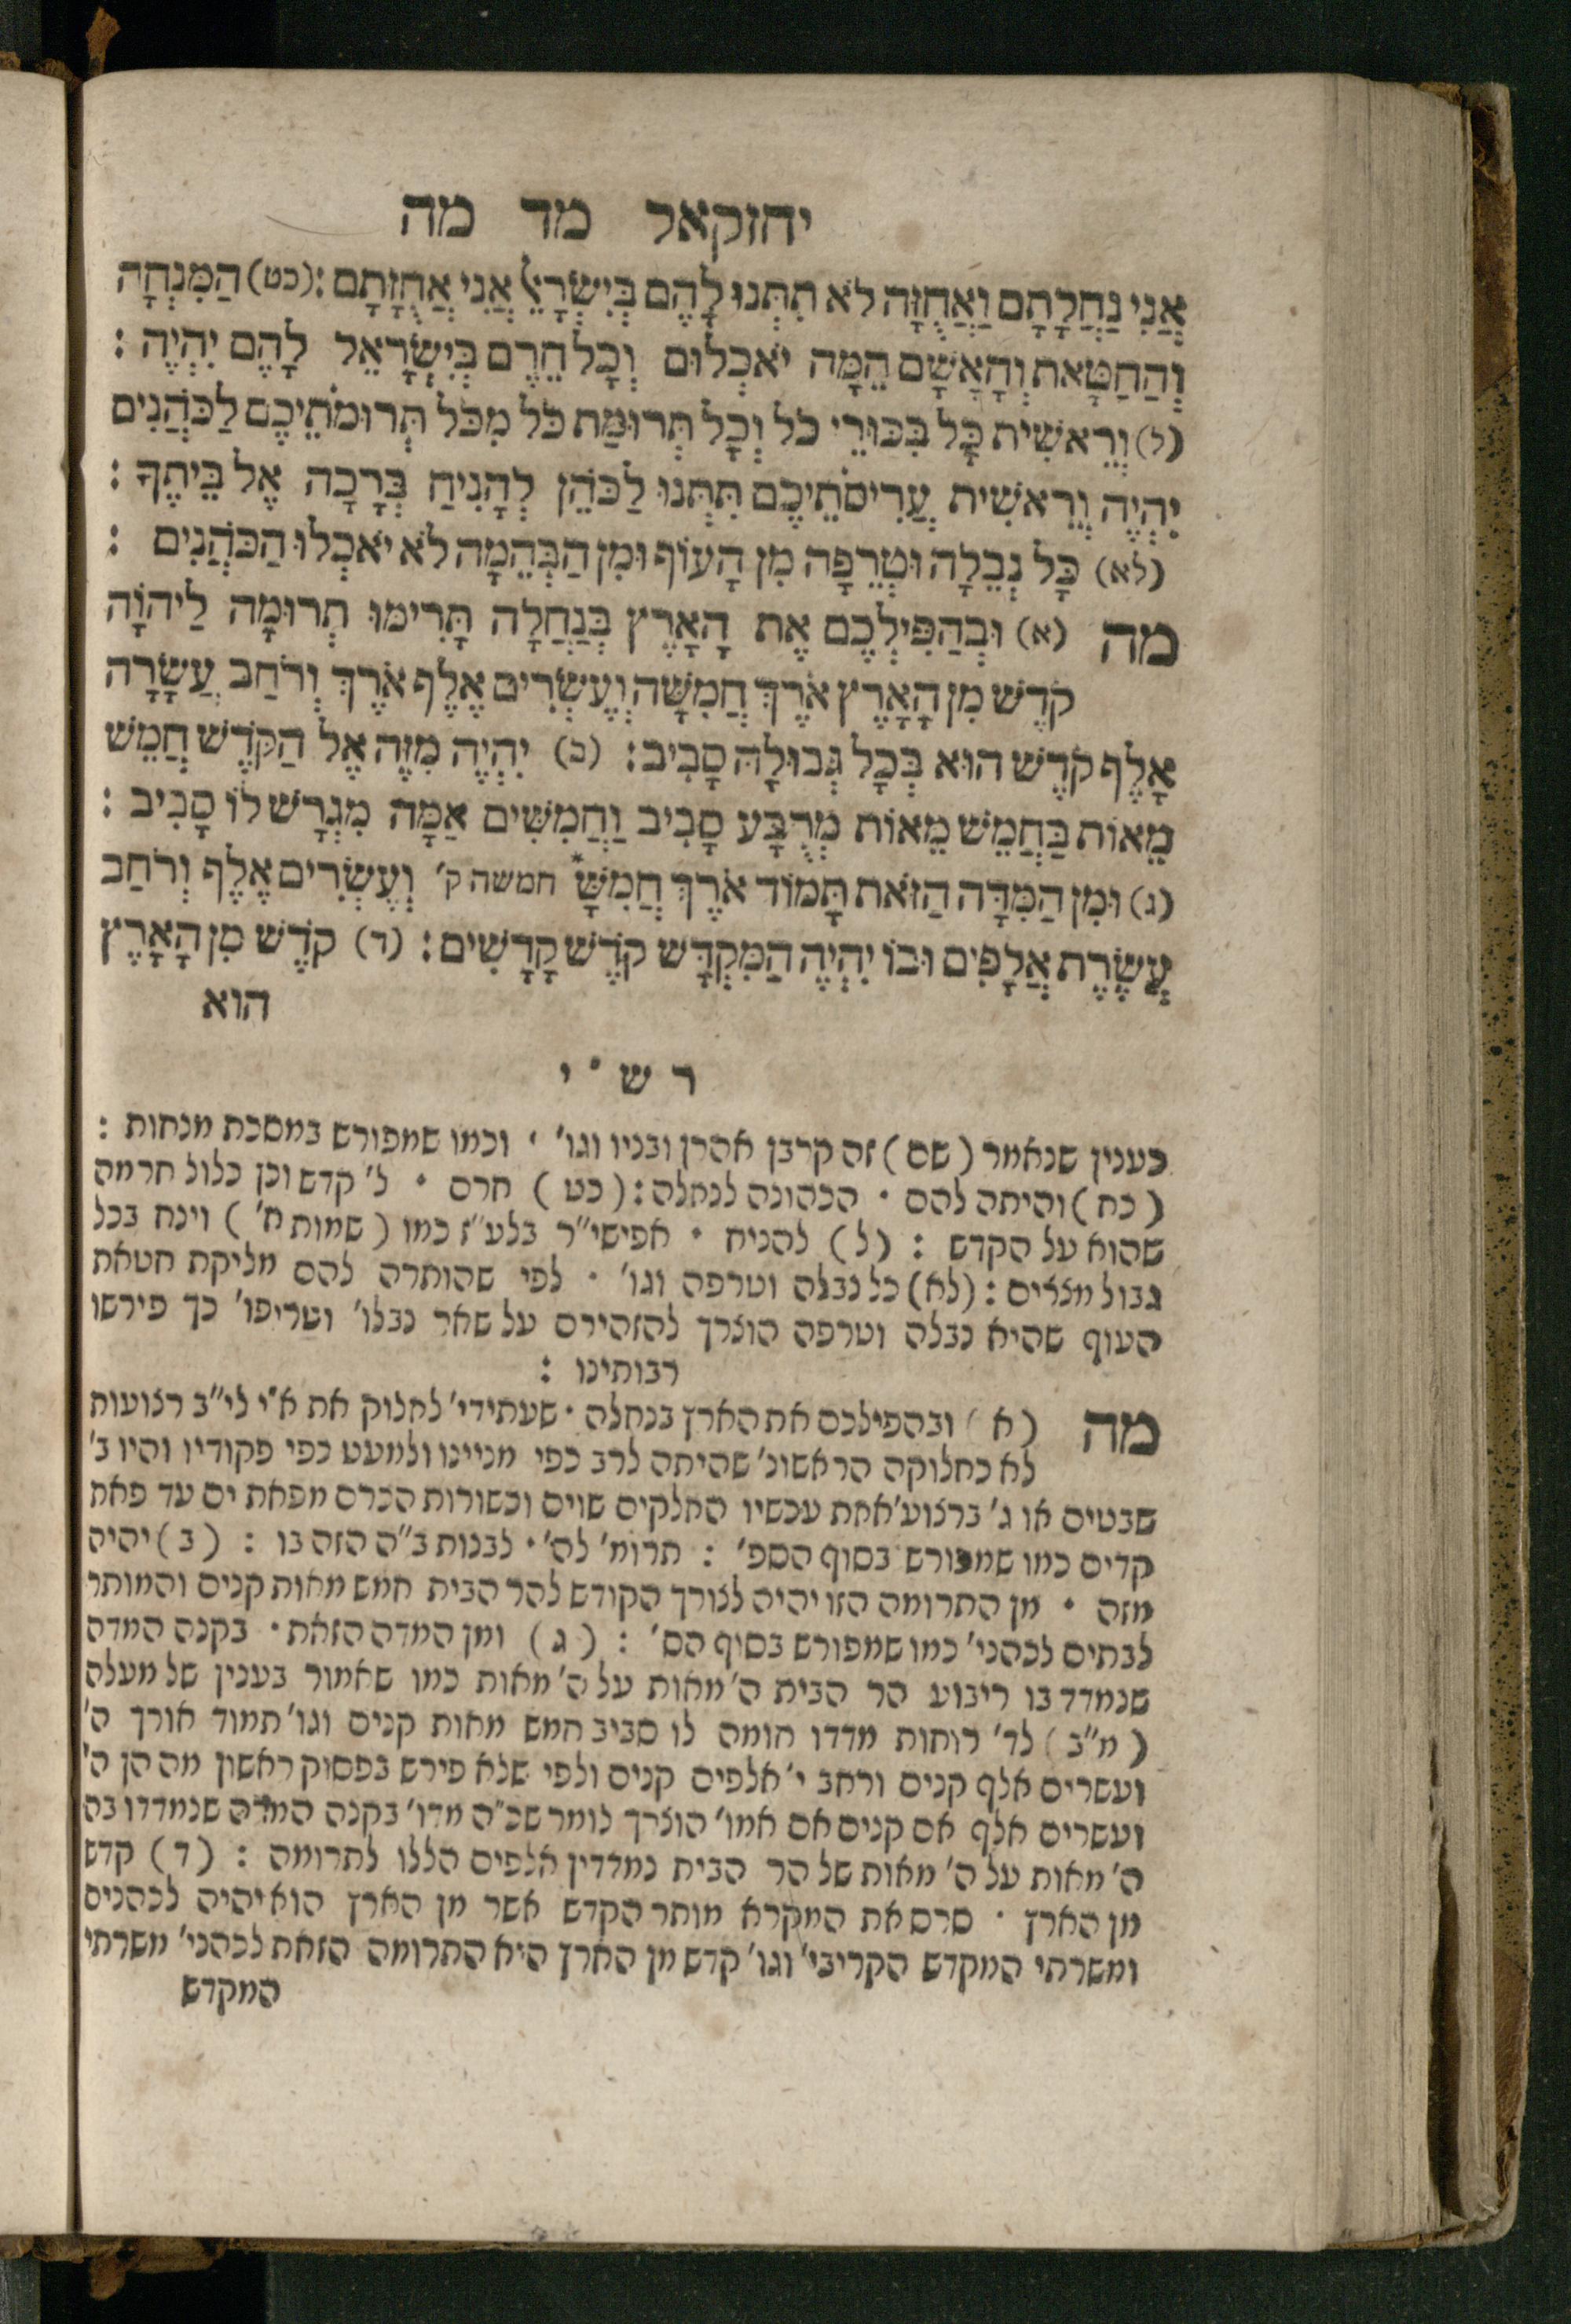 יחזקאל מד מה
אֲנִי נַחֲלָתָם וַאֲחֻזָּה לֹא תִתְּנוּ לָהֶם בְּיִשְׂרָאֵל אֲנִי אֲחֻזָּתָם : (כט) הַמִּנְחָה
וְהַחַטָּאת וְהָאָשָׁם הֵמָּה יֹאכְלוּם וְכָל חֵרֶם בְּיִשְׂרָאֵל לָהֶם יִהְיֶה :
(ל) וְרֵאשִׁית כָּל בִּכּוּרֵי כֹל וְכָל תְּרוּמַת כֹּל מִכֹּל תְּרוּמֹתֵיכֶם לַכֹּהֲנִים
יִהְיֶה וְרֵאשִׁית עֲרִיסֹתֵיכֶם תִּתְּנוּ לַכֹּהֵן לְהָנִיחַ בְּרָכָה אֶל בֵּיתֶךָ :
(לא) כָּל נְבֵלָה וּטְרֵפָה מִן הָעוֹף וּמִן הַבְּהֵמָה לֹא יֹאכְלוּ הַכֹּהֲנִים :
מה (א) וּבְהַפִּילְכֶם אֶת הָאָרֶץ בְּנַחֲלָה תָּרִימוּ תְרוּמָה לַיהוָֹה
קֹדֶשׁ מִן הָאָרֶץ אֹרֶךְ חֲמִשָּׁה וְעֶשְׂרִים אֶלֶף אֹרֶךְ וְרֹחַב עֲשָׂרָה
אָלֶף קֹדֶשׁ הוּא בְּכָל גְּבוּלָהּ סָבִיב : (ב) יִהְיֶה מִזֶּה אֶל הַקֹּדֶשׁ חֲמֵשׁ
מֵאוֹת בַּחֲמֵשׁ מֵאוֹת מְרֻבָּע סָבִיב וַחֲמִשִּׁים אַמָּה מִגְרָשׁ לוֹ סָבִיב :
(ג) וּמִן הַמִּדָּה הַזֹּאת תָּמוֹד אֹרֶךְ חֲמִשָּׁ* חמשה ק' וְעֶשְׂרִים אֶלֶף וְרֹחַב
עֲשֶׂרֶת אֲלָפִים וּבוֹ יִהְיֶה הַמִּקְדָּשׁ קֹדֶשׁ קָדָשִׁים : (ד) קֹדֶשׁ מִן הָאָרֶץ
הוא
ר ש " י
כענין שנאמר (שם) זה קרבן אהרן ובניו וגו' · וכמו שמפורש במסכת מנחות :
(כח) והיתה להם · הכהונה לנחלה : (כט) חרם · ל' קדש וכן כלול חרמה
שהוא על הקדש : (ל) להניח · אפישי"ר בלע"ז כמו (שמות ח') וינח בכל
גבול מצרים : (לא) כל נבלה וטרפה וגו' · לפי שהותרה להם מליקת חטאת
העוף שהיא נבלה וטרפה הוצרך להזהירם על שאר נבלו' וטריפו' כך פירשו
רבותינו :
מה (א) ובהפילכם את הארץ בנחלה · שעתידי' לחלוק את א"י לי"ב רצועות
לא כחלוקה הראשונ' שהיתה לרב כפי מניינו ולמעט כפי פקודיו והיו ב'
שבטים או ג' ברצוע' אחת עכשיו החלקים שוים וכשורות הכרם מפאת ים עד פאת
קדים כמו שמפורש בסוף הספ' : תרומ' לה' · לבנות ב"ה הזה בו : (ב) יהיה
מזה · מן התרומה הזו יהיה לצורך הקודש להר הבית חמש מאות קנים והמותר
לבתים לכהני' כמו שמפורש בסוף הס' : (ג) ומן המדה הזאת · בקנה המדה
שנמדד בו ריבוע הר הבית ה' מאות על ה' מאות כמו שאמור בענין של מעלה
(מ"ב) לד' רוחות מדדו חומה לו סביב חמש מאות קנים וגו' תמוד אורך ה'
ועשרים אלף קנים ורחב י' אלפים קנים ולפי שלא פירש בפסוק ראשון מה הן ה'
ועשרים אלף אם קנים אם אמו' הוצרך לומר שכ"ה מדו' בקנה המדה שנמדדו בה
ה' מאות על ה' מאות של הר הבית נמדדין אלפים הללו לתרומה : (ד) קדש
מן הארץ · סרס את המקרא מותר הקדש אשר מן הארץ הוא יהיה לכהנים
ומשרתי המקדש הקריבי' וגו' קדש מן הארץ היא התרומה הזאת לכהני' משרתי
המקדש